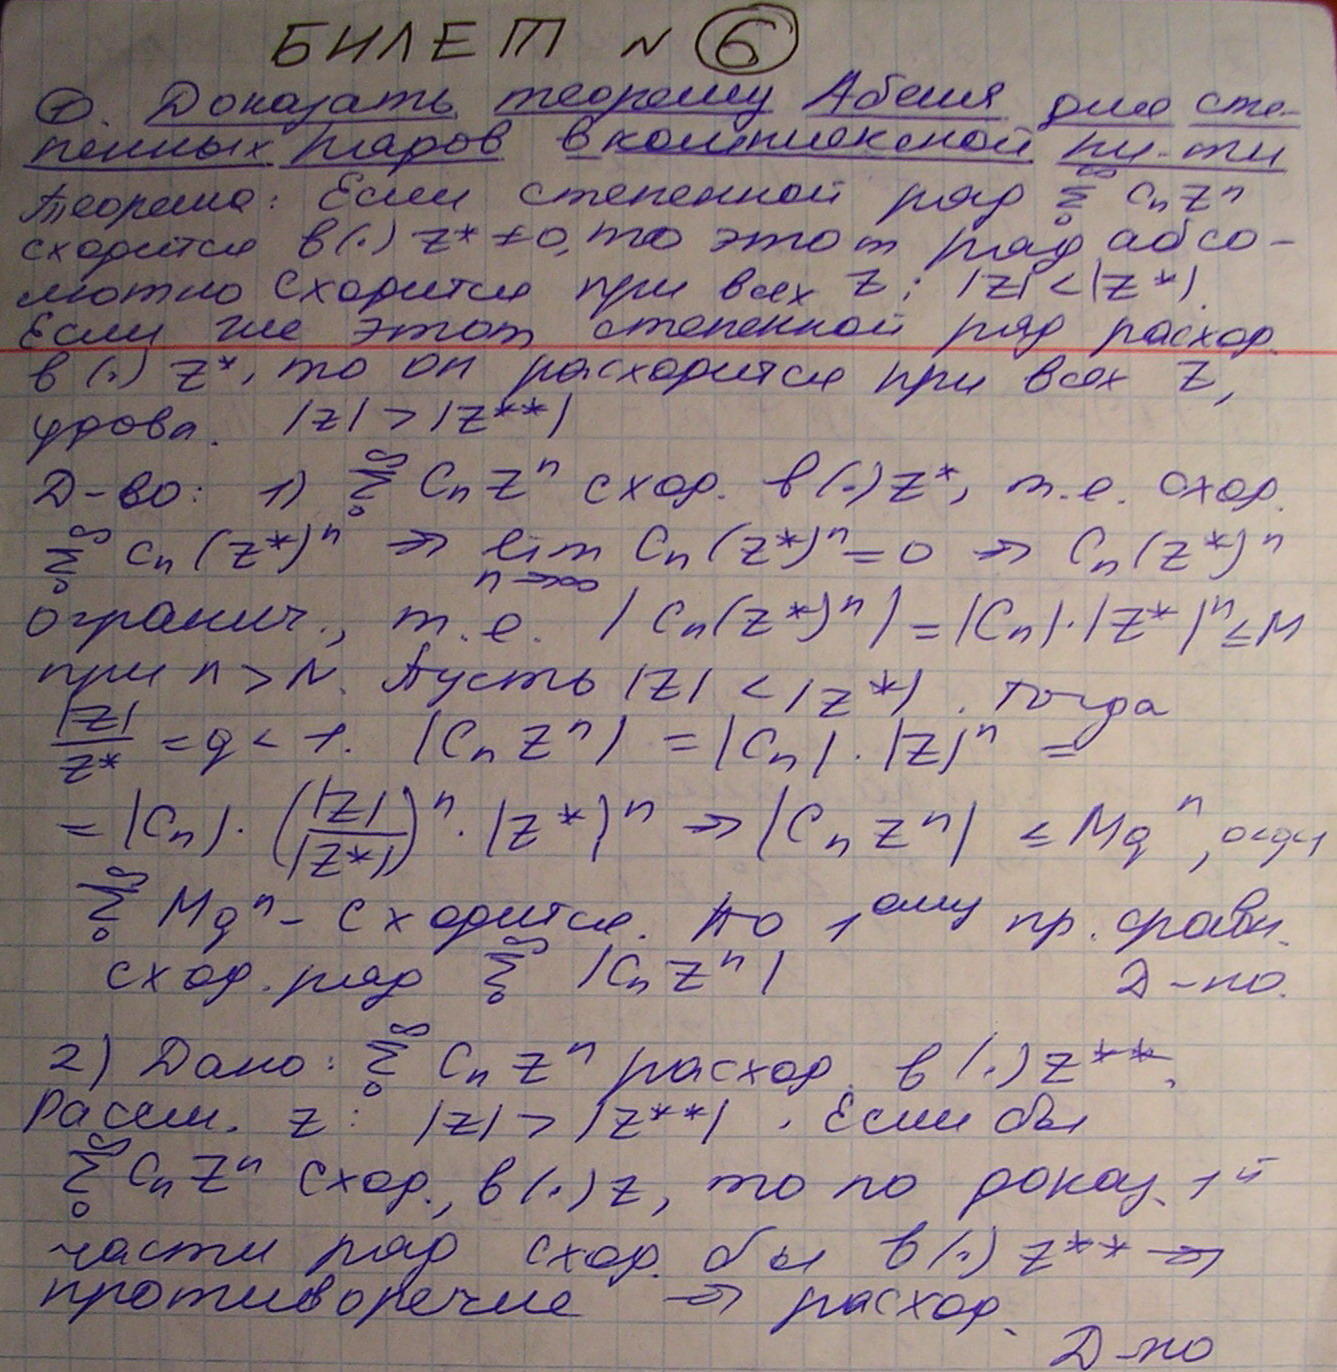 БИЛЕТ № 6
1. Доказать теорему Абеля для сте-
пенных рядов в комплексной пл-ти
Теорема: Если степенной ряд ∑₀^∞ Cₙzⁿ
сходится в (.) z* ≠ 0, то этот ряд абсо-
лютно сходится при всех z: |z| < |z*|.
Если же этот степенной ряд расход.
в (.) z*, то он расходится при всех z,
удовл. |z| > |z**|
Д-во: 1) ∑₀^∞ Cₙzⁿ сход. в (.) z*, т.е. сход.
∑₀^∞ Cₙ(z*)ⁿ ⇒ lim n→∞ Cₙ(z*)ⁿ = 0 ⇒ Cₙ(z*)ⁿ
огранич., т.е. |Cₙ(z*)ⁿ| = |Cₙ|·|z*|ⁿ ≤ M
при n > N. Пусть |z| < |z*|. Тогда
|z|/z* = q < 1. |Cₙzⁿ| = |Cₙ|·|z|ⁿ =
= |Cₙ|·(|z|/|z*|)ⁿ·|z*|ⁿ ⇒ |Cₙzⁿ| ≤ Mqⁿ, 0<q<1
∑₀^∞ Mqⁿ - сходится. По 1ому пр. сравн.
сход. ряд ∑₀^∞ |Cₙzⁿ| Д-но.
2) Дано: ∑₀^∞ Cₙzⁿ расход. в (.) z**.
Рассм. z: |z| > |z**|. Если бы
∑₀^∞ Cₙzⁿ сход., в (.) z, то по доказ. 1й
части ряд сход. бы в (.) z** ⇒
противоречие ⇒ расход.
Д-но